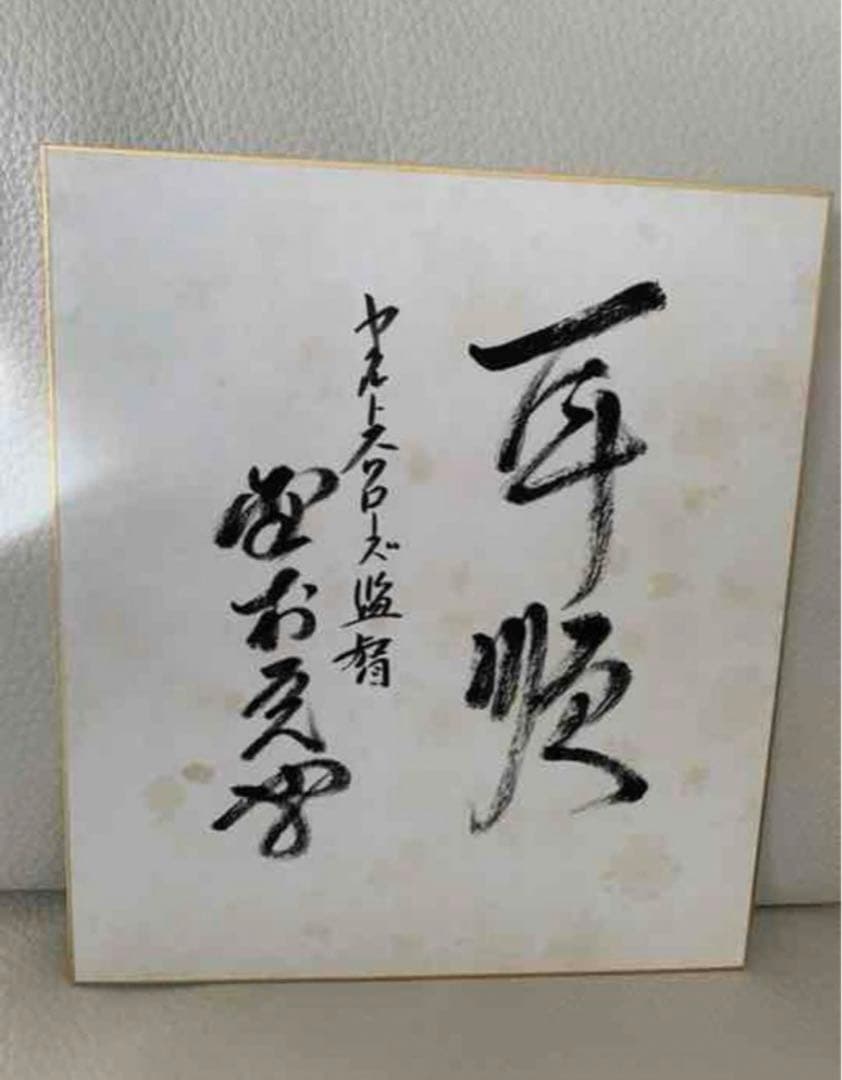 耳順
ヤクルトスワローズ監督
野村克也